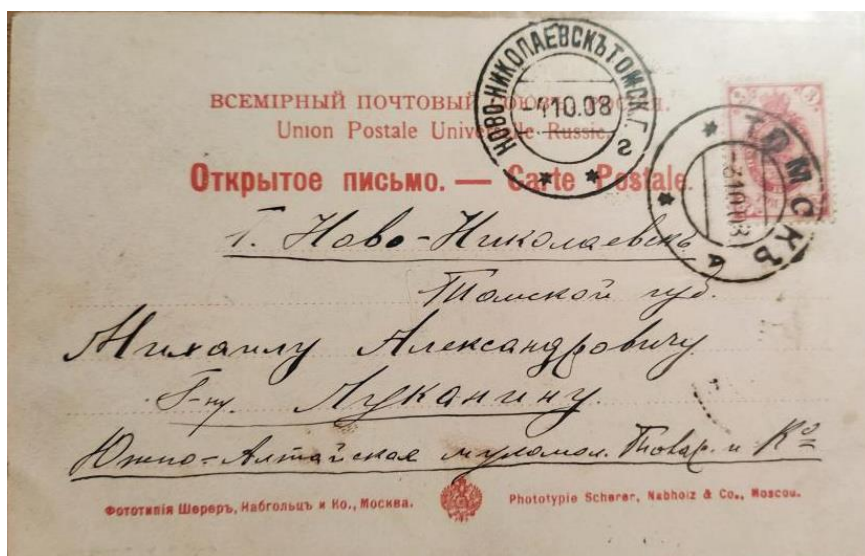 ВСЕМІРНЫЙ ПОЧТОВЫЙ СОЮЗЪ. РОССІЯ.
Union Postale Universelle Russie.
Открытое письмо. — Carte Postale.
НОВО-НИКОЛАЕВСКЪ ТОМСК.Г. 2
10.08
ТОМСКЪ А
10.08
Г. Ново-Николаевскъ
Томской губ.
Михаилу Александровичу
Г-ну Луканину.
Южно-Алтайская мукомол. Товар. и Ко
Фототипія Шереръ, Набгольцъ и Ко., Москва.
Phototypie Scherer, Nabholz & Co., Moscou.